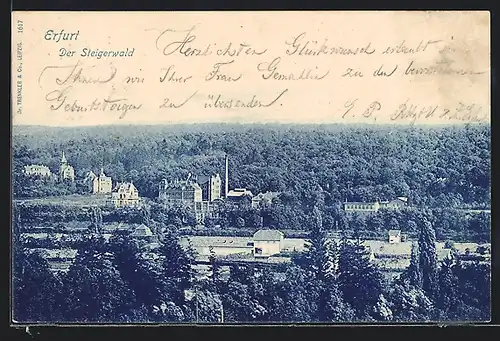 Erfurt
Der Steigerwald
Herzlichsten Glückwunsch erlaubt
Ihnen wie Ihrer Frau Gemahlin zu da
Geburtstage zu übersenden
Dr. TRENKLER & Co., LEIPZIG. 1617